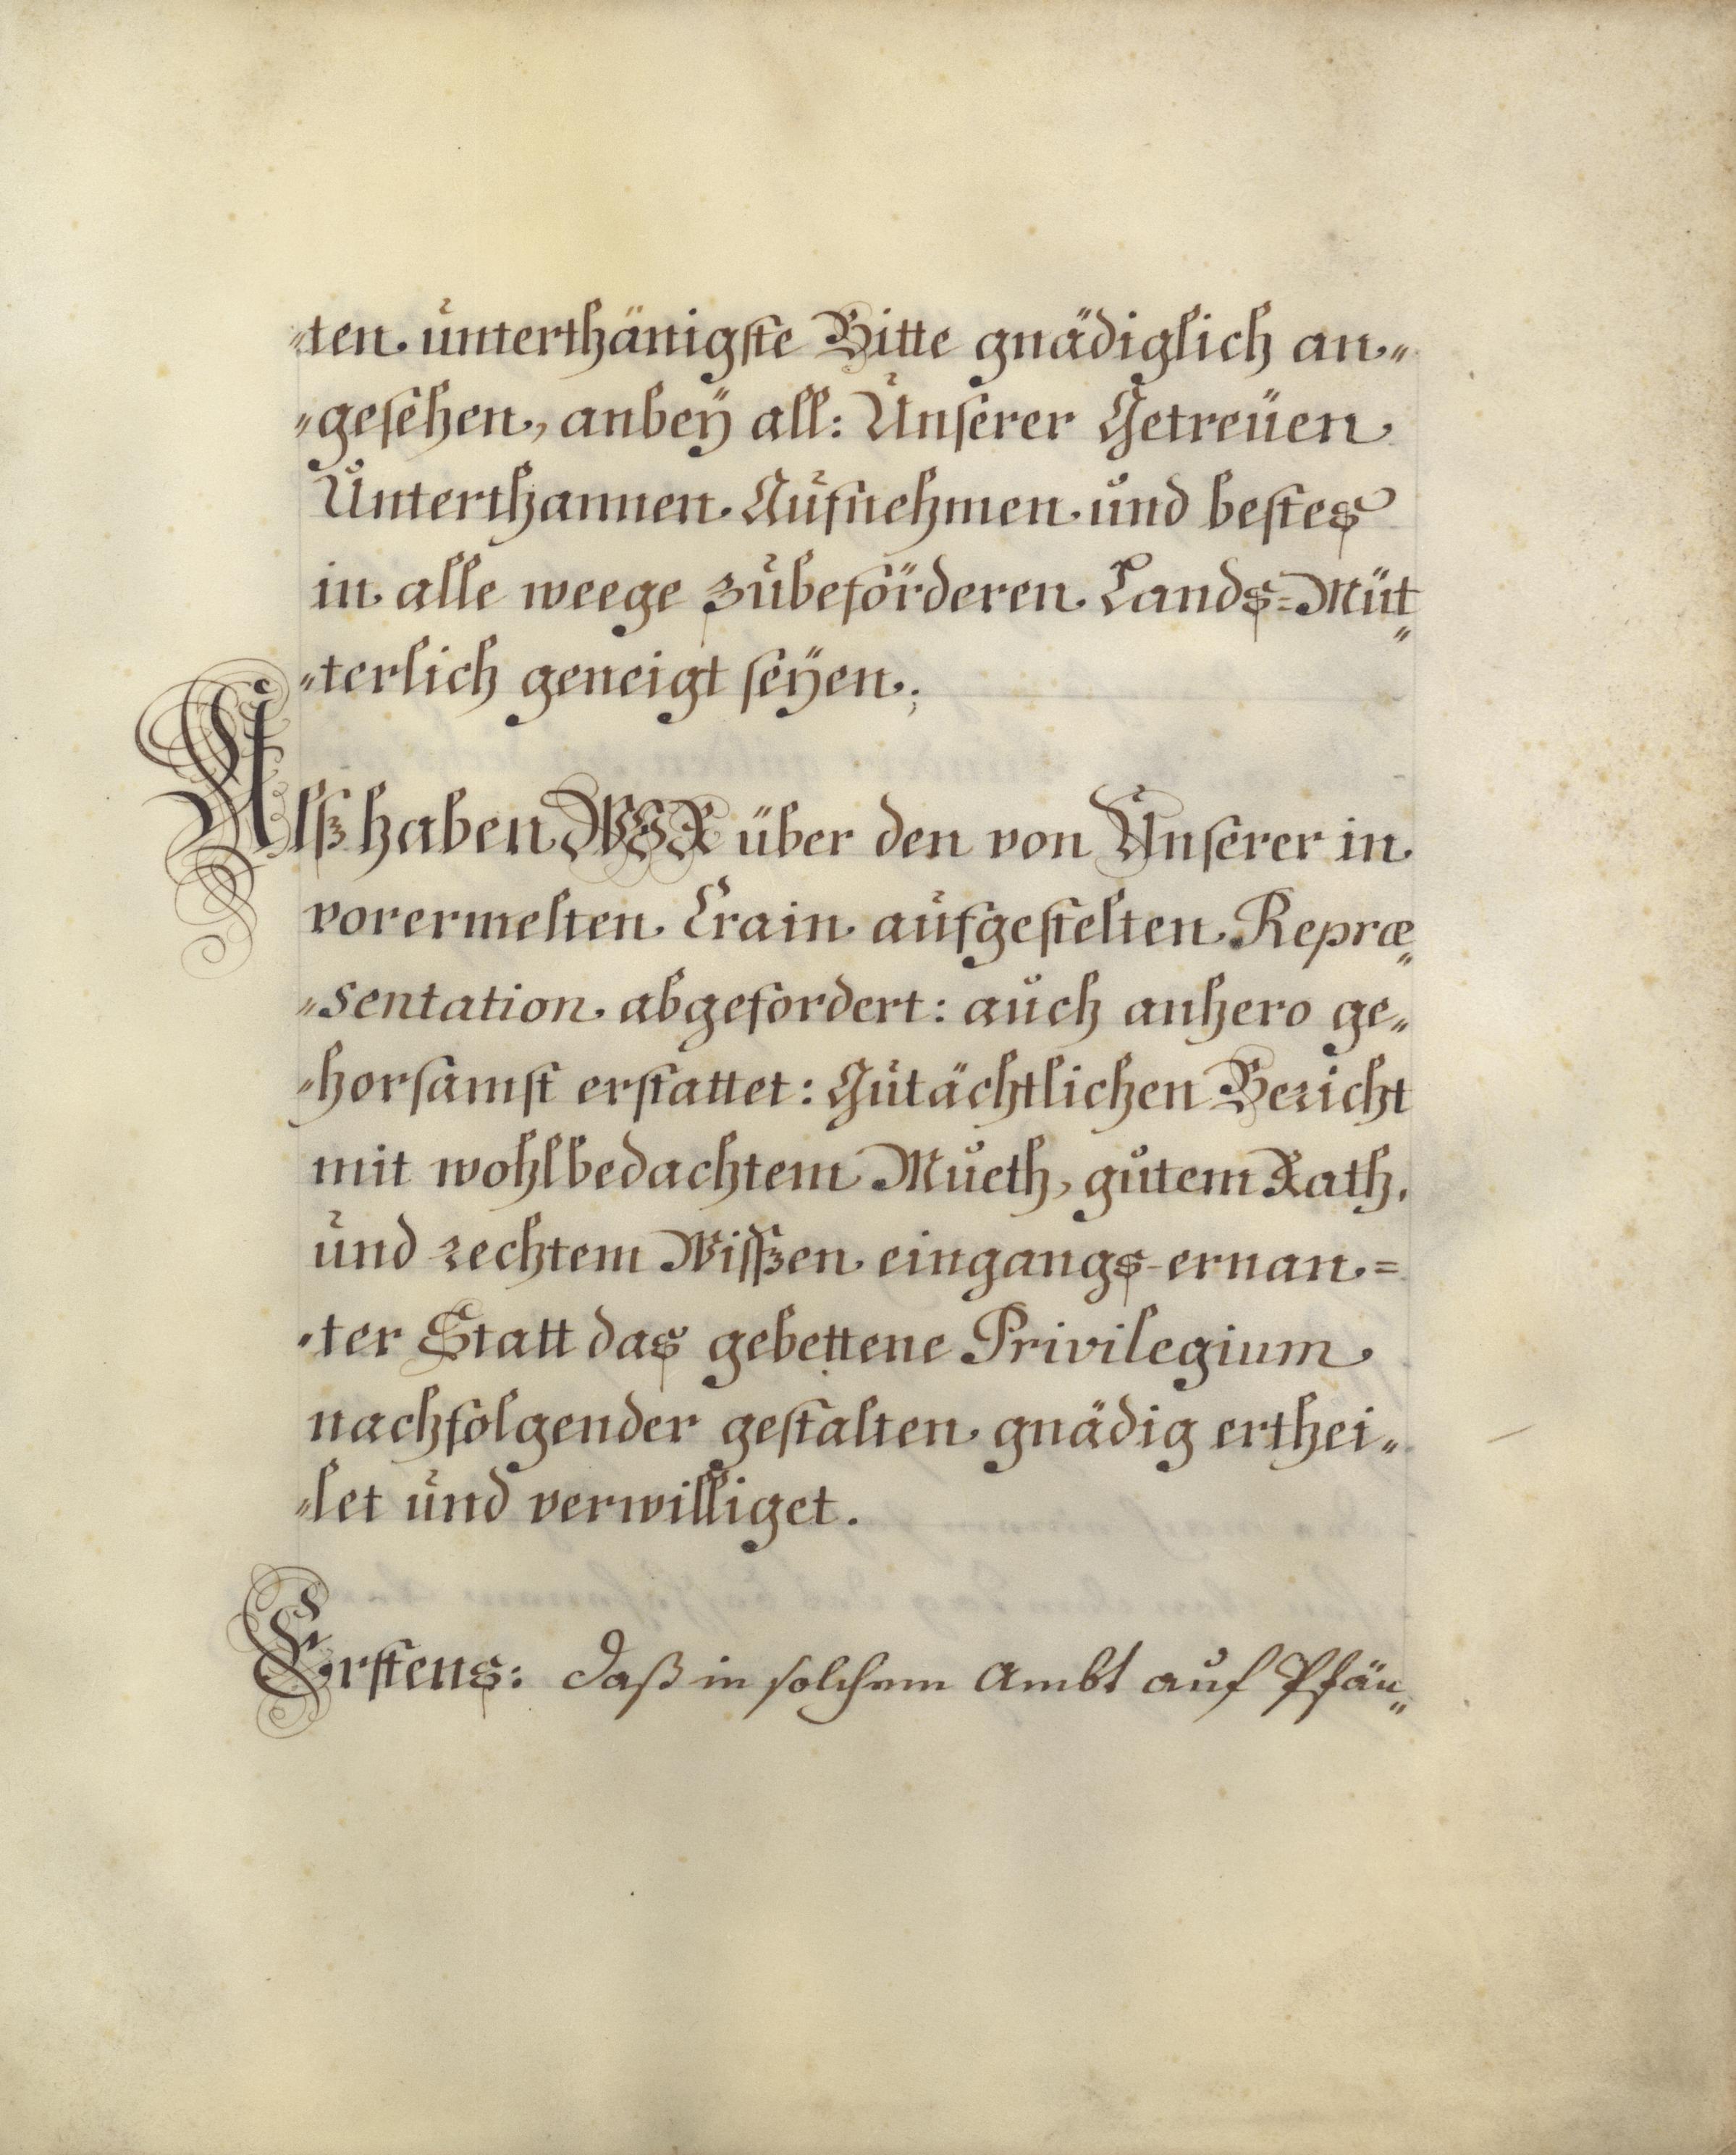 „ten unterthänigste Bitte gnädiglich an„
„gesehen, anbeÿ all: Unserer Getreüen
Unterthannen Aufnehmen und bestes
in alle weege zubeförderen Lands=Müt„
„terlich geneigt seÿen;
Alß haben WIR über den von Unserer in
vorermelten Crain aufgestelten Repræ„
„sentation abgefordert: auch anhero ge„
„horsamst erstattet: Gutächtlichen Bericht
mit wohlbedachtem Mueth, gutem Rath,
und rechtem Wißen eingangs-ernan=
„ter Statt das gebettene Privilegium
nachfolgender gestalten gnädig erthei„
„let und verwilliget.
Erstens: daß in solchem Ambt auf Pfän„